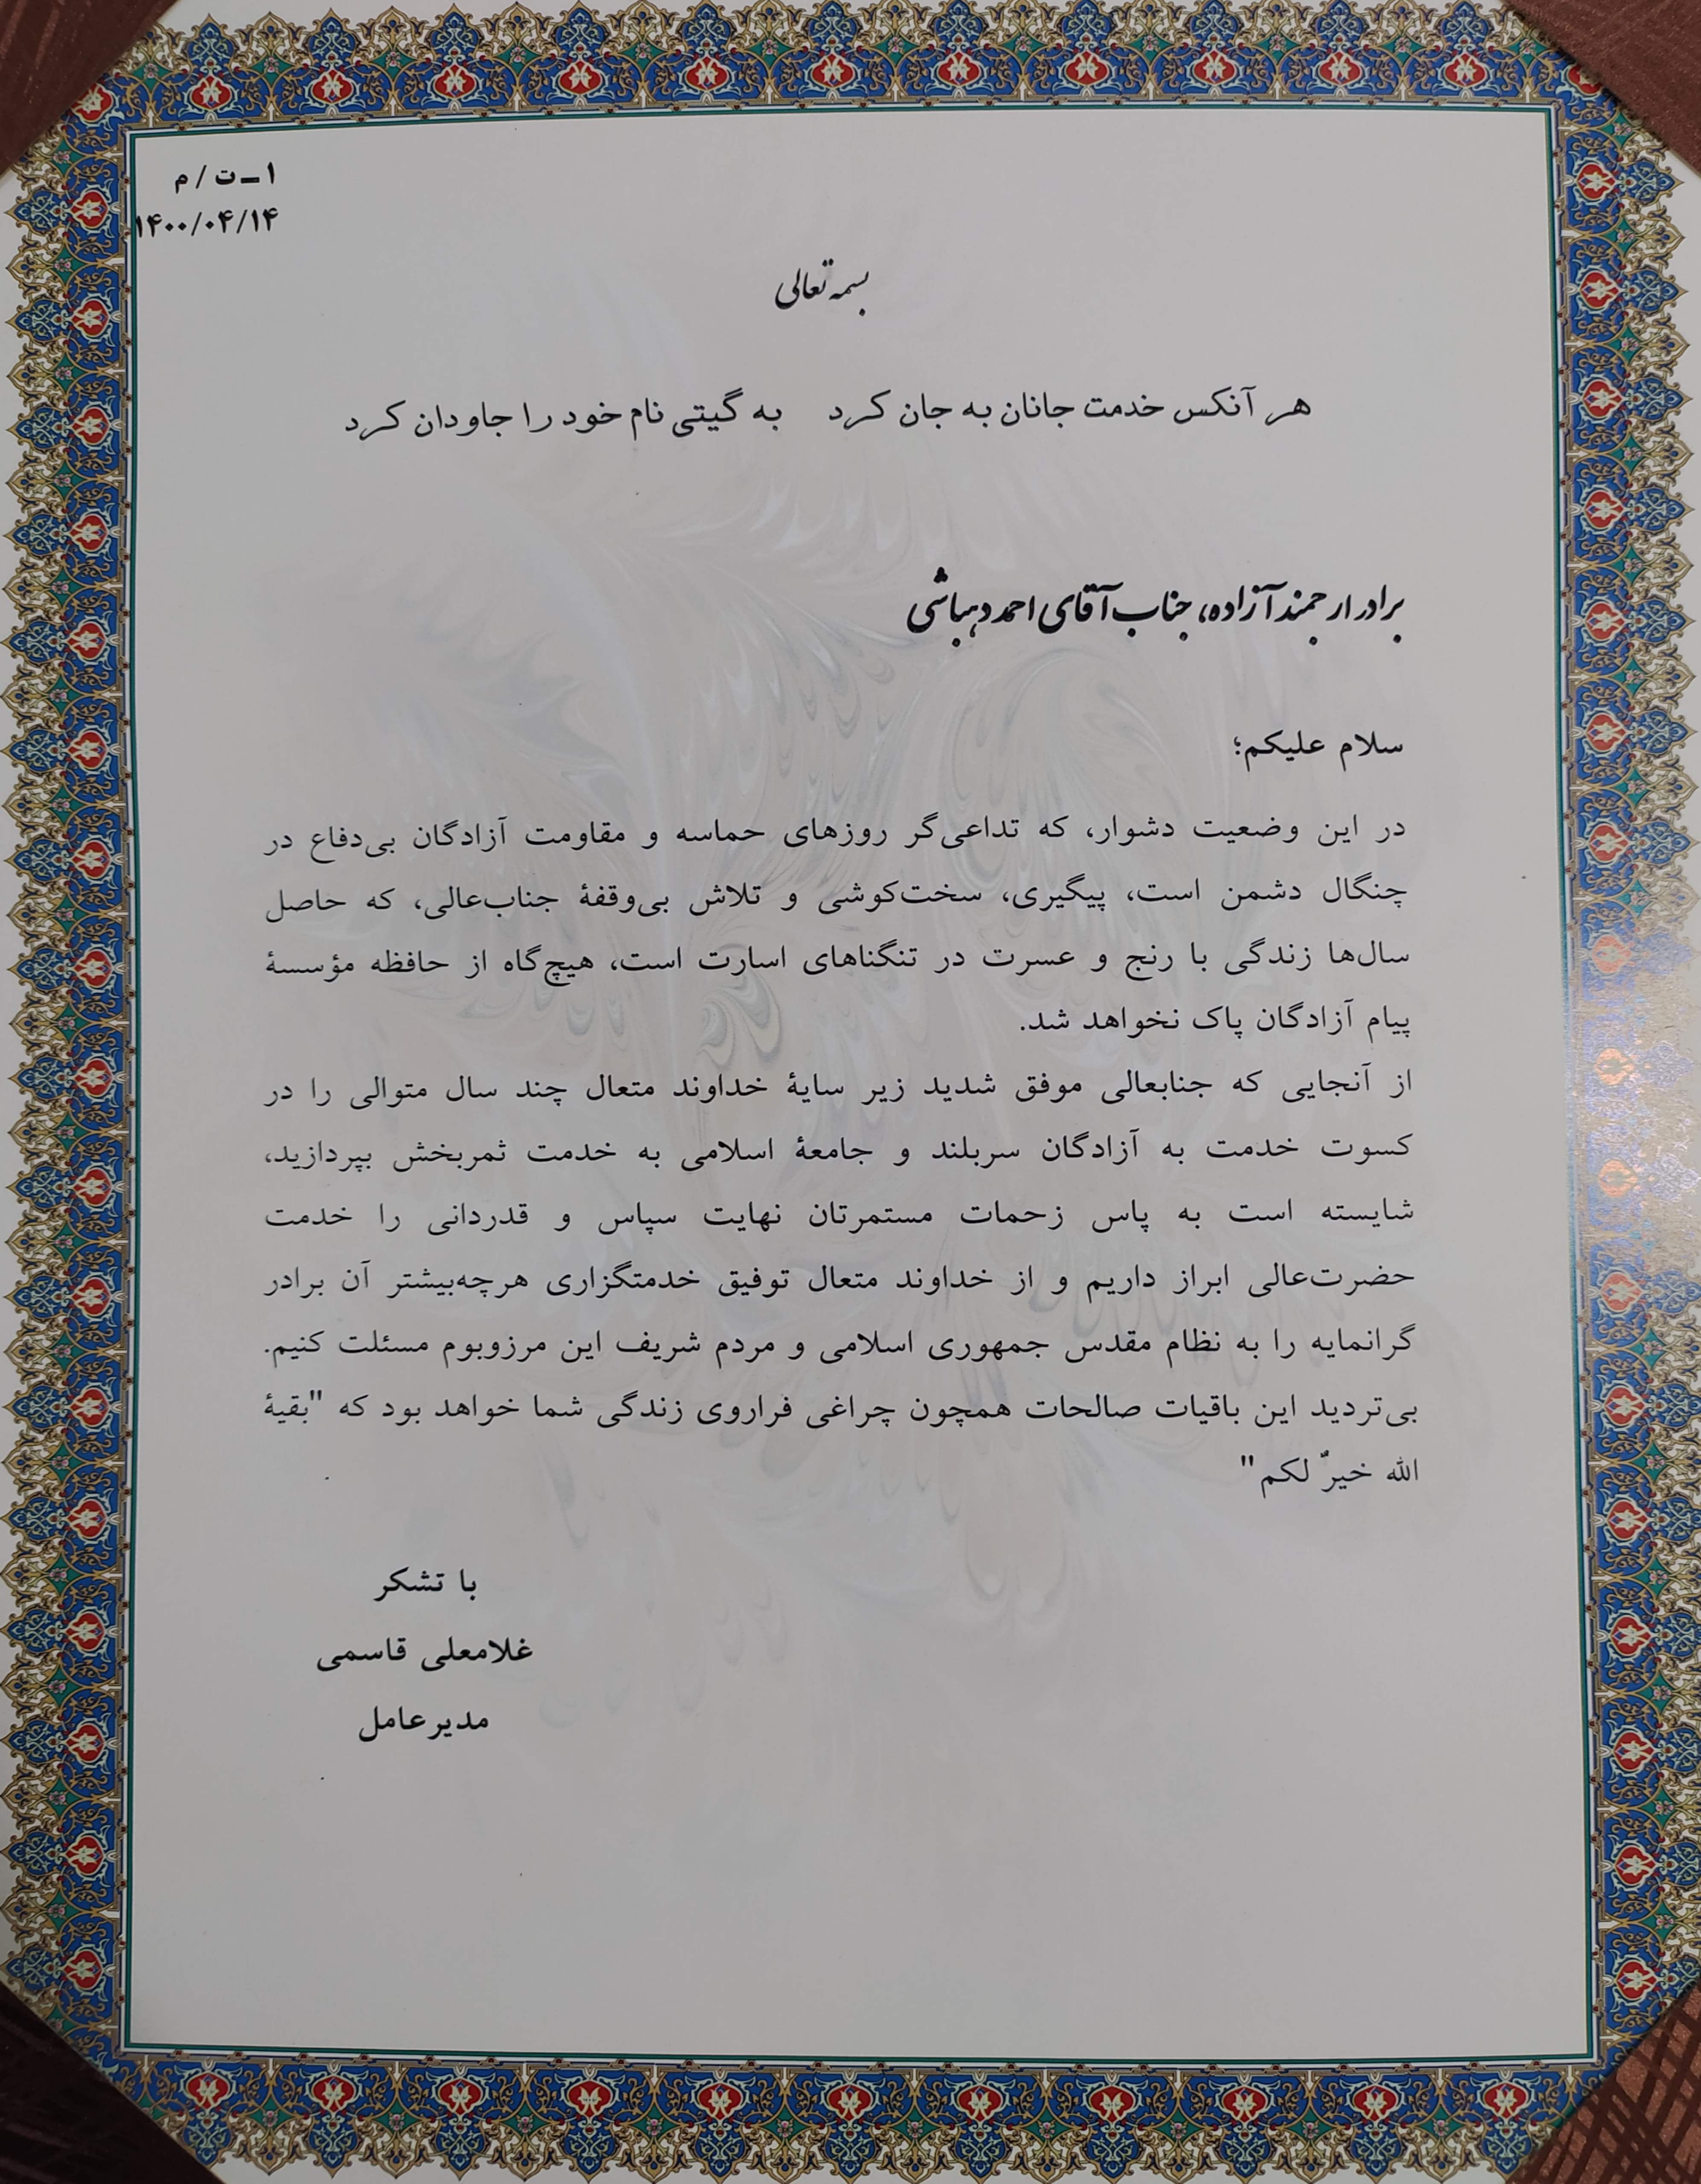 ۱ـ ت / م
۱۴۰۰/۰۴/۱۴
بسمه تعالی
هر آنکس خدمت جانان به جان کرد به گیتی نام خود را جاودان کرد
برادر ارجمند آزاده، جناب آقای احمد دهباشی
سلام علیکم؛
در این وضعیت دشوار، که تداعی‌گر روزهای حماسه و مقاومت آزادگان بی‌دفاع در
چنگال دشمن است، پیگیری، سخت‌کوشی و تلاش بی‌وقفهٔ جناب‌عالی، که حاصل
سال‌ها زندگی با رنج و عسرت در تنگناهای اسارت است، هیچ‌گاه از حافظه مؤسسهٔ
پیام آزادگان پاک نخواهد شد.
از آنجایی که جنابعالی موفق شدید زیر سایهٔ خداوند متعال چند سال متوالی را در
کسوت خدمت به آزادگان سربلند و جامعهٔ اسلامی به خدمت ثمربخش بپردازید،
شایسته است به پاس زحمات مستمرتان نهایت سپاس و قدردانی را خدمت
حضرت‌عالی ابراز داریم و از خداوند متعال توفیق خدمتگزاری هرچه‌بیشتر آن برادر
گرانمایه را به نظام مقدس جمهوری اسلامی و مردم شریف این مرزوبوم مسئلت کنیم.
بی‌تردید این باقیات صالحات همچون چراغی فراروی زندگی شما خواهد بود که "بقیهٔ
الله خیرٌ لکم"
با تشکر
غلامعلی قاسمی
مدیرعامل